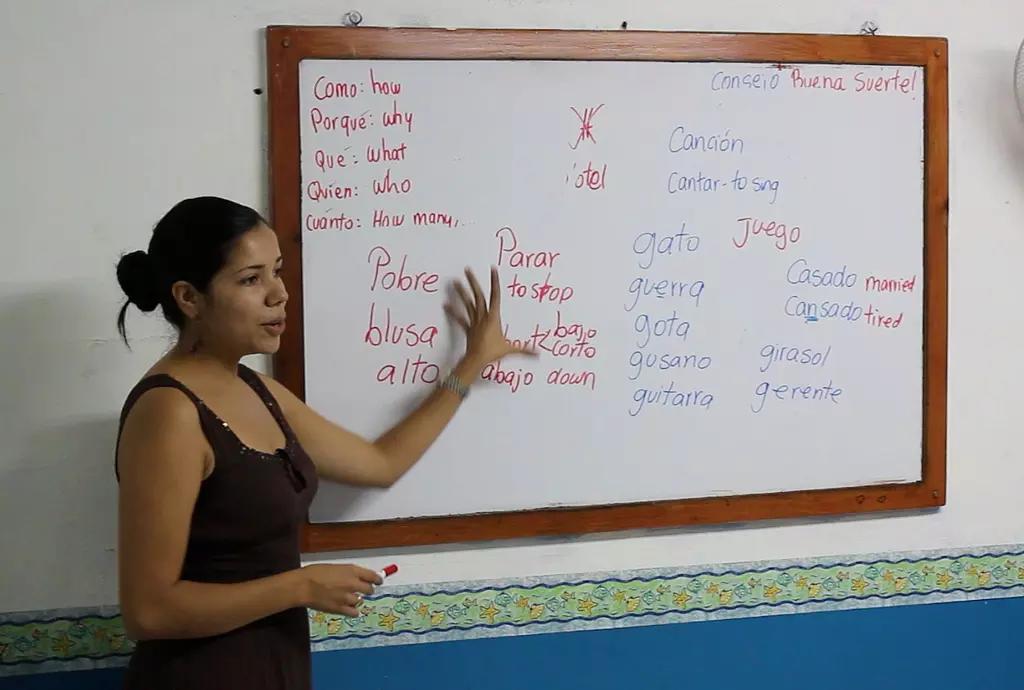 Como: how
Porqué: why
Qué: what
Quien: who
Cuánto: How many,...
Consejo Buena Suerte!
otel
Canción
Cantar-to sing
Pobre
blusa
alto
Parar
to stop
bajo
corto
abajo down
gato
guerra
gota
gusano
guitarra
juego
Casado married
Cansado tired
girasol
gerente